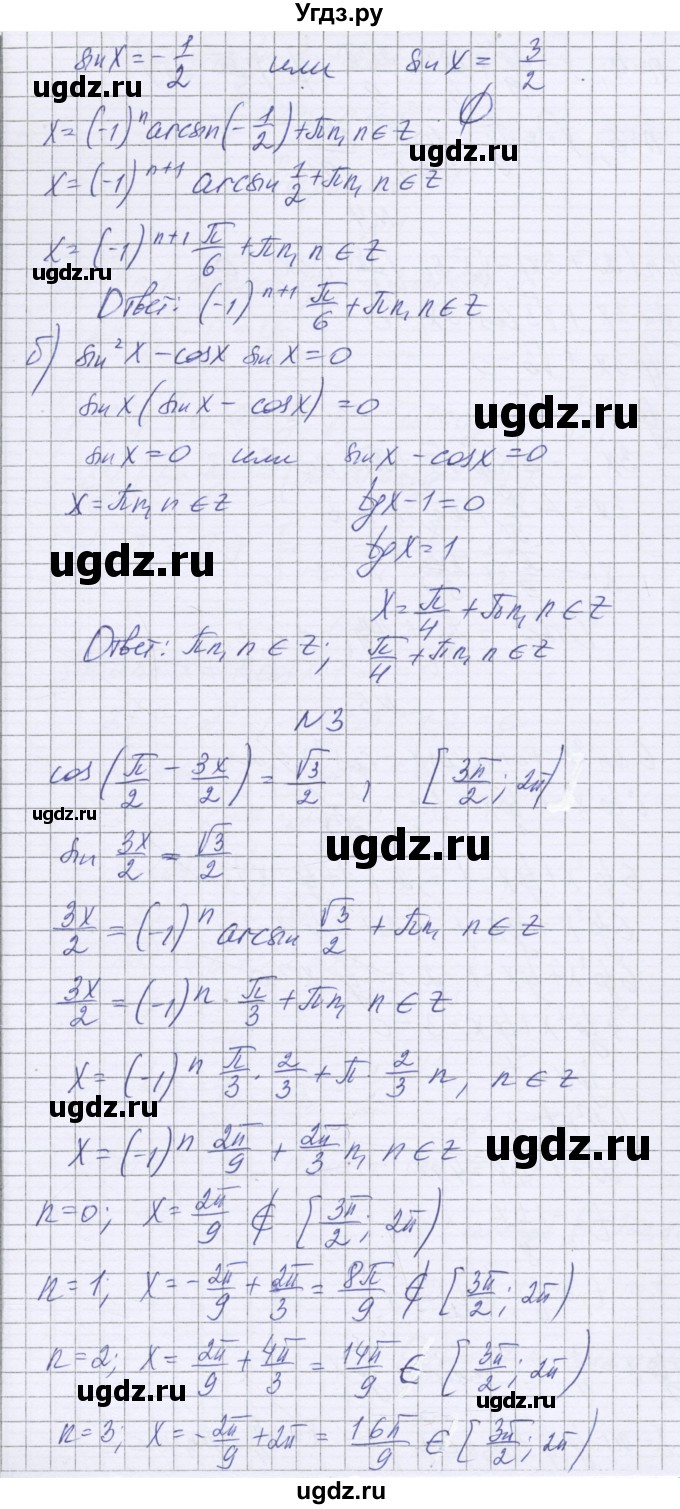 Угдз.ру
sin x = -1/2 или sin x = 3/2
ugdz.ru ∅
x = (-1)^n arcsin(-1/2) + πn, n ∈ Z
ugdz.ru
x = (-1)^(n+1) arcsin 1/2 + πn, n ∈ Z
x = (-1)^(n+1) π/6 + πn, n ∈ Z
ugdz.ru
Ответ: (-1)^(n+1) π/6 + πn, n ∈ Z
б) sin²x - cosx sinx = 0
sinx(sinx - cosx) = 0
ugdz.ru
sinx = 0 или sinx - cosx = 0
x = πn, n ∈ Z tgx - 1 = 0
ugdz.ru
tgx = 1
x = π/4 + πn, n ∈ Z
Ответ: πn, n ∈ Z; π/4 + πn, n ∈ Z
N3
cos(π/2 - 3x/2) = √3/2, [3π/2; 2π)
ugdz.ru
sin 3x/2 = √3/2
ugdz.ru
3x/2 = (-1)^n arcsin √3/2 + πn, n ∈ Z
3x/2 = (-1)^n π/3 + πn, n ∈ Z
x = (-1)^n π/3 · 2/3 + π · 2/3 n, n ∈ Z
ugdz.ru
x = (-1)^n 2π/9 + 2π/3 n, n ∈ Z
ugdz.ru
n = 0; x = 2π/9 ∉ [3π/2; 2π)
n = 1; x = -2π/9 + 2π/3 = 8π/9 ∉ [3π/2; 2π)
n = 2; x = 2π/9 + 4π/3 = 14π/9 ∈ [3π/2; 2π)
ugdz.ru
ugdz.ru
n = 3; x = -2π/9 + 2π = 16π/9 ∈ [3π/2; 2π)
ugdz.ru